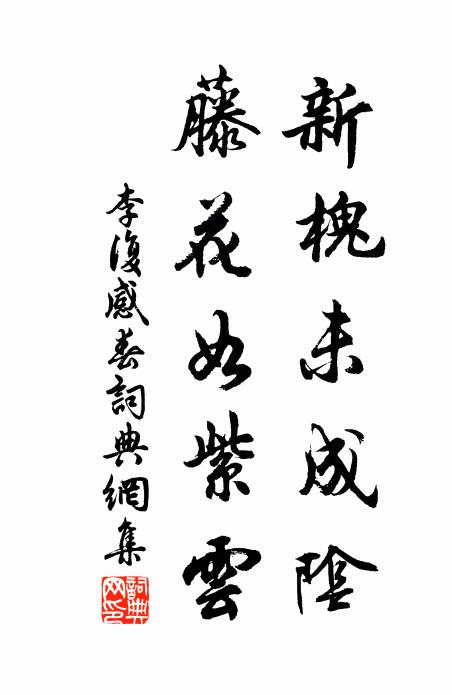 新槐未成陰
藤花如紫雲
李復感春詞典網集
詞典網印